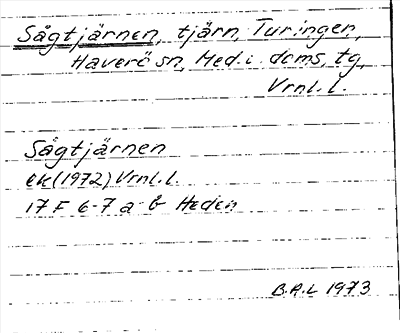 Sågtjärnen, tjärn, Turingen,
Haverö sn, Med. i. dcms, tg,
Vrnl. l.
Sågtjärnen
ek (1972) Vrnl. l.
17 F 6-7 a-b Heden
B.A.L 1973